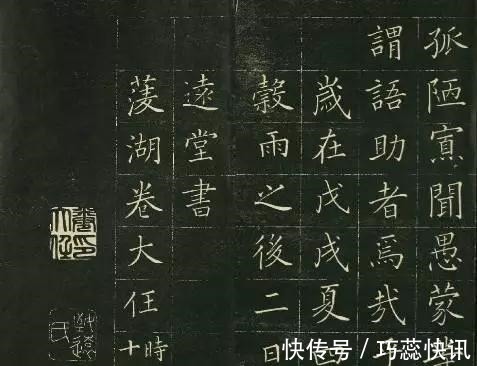 孤陋寡聞愚蒙等
謂語助者焉哉乎
歳在戊戌夏四
穀雨之後二日
遠堂書
蓤湖卷大任時十
快传号 / 巧蕊快讯